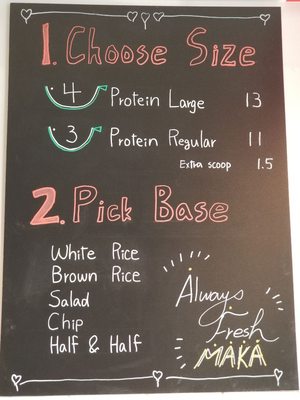 1. Choose Size
4 Protein Large 13
3 Protein Regular 11
Extra scoop 1.5
2. Pick Base
White Rice
Brown Rice
Salad
Chip
Half & Half
Always
Fresh
MAKA